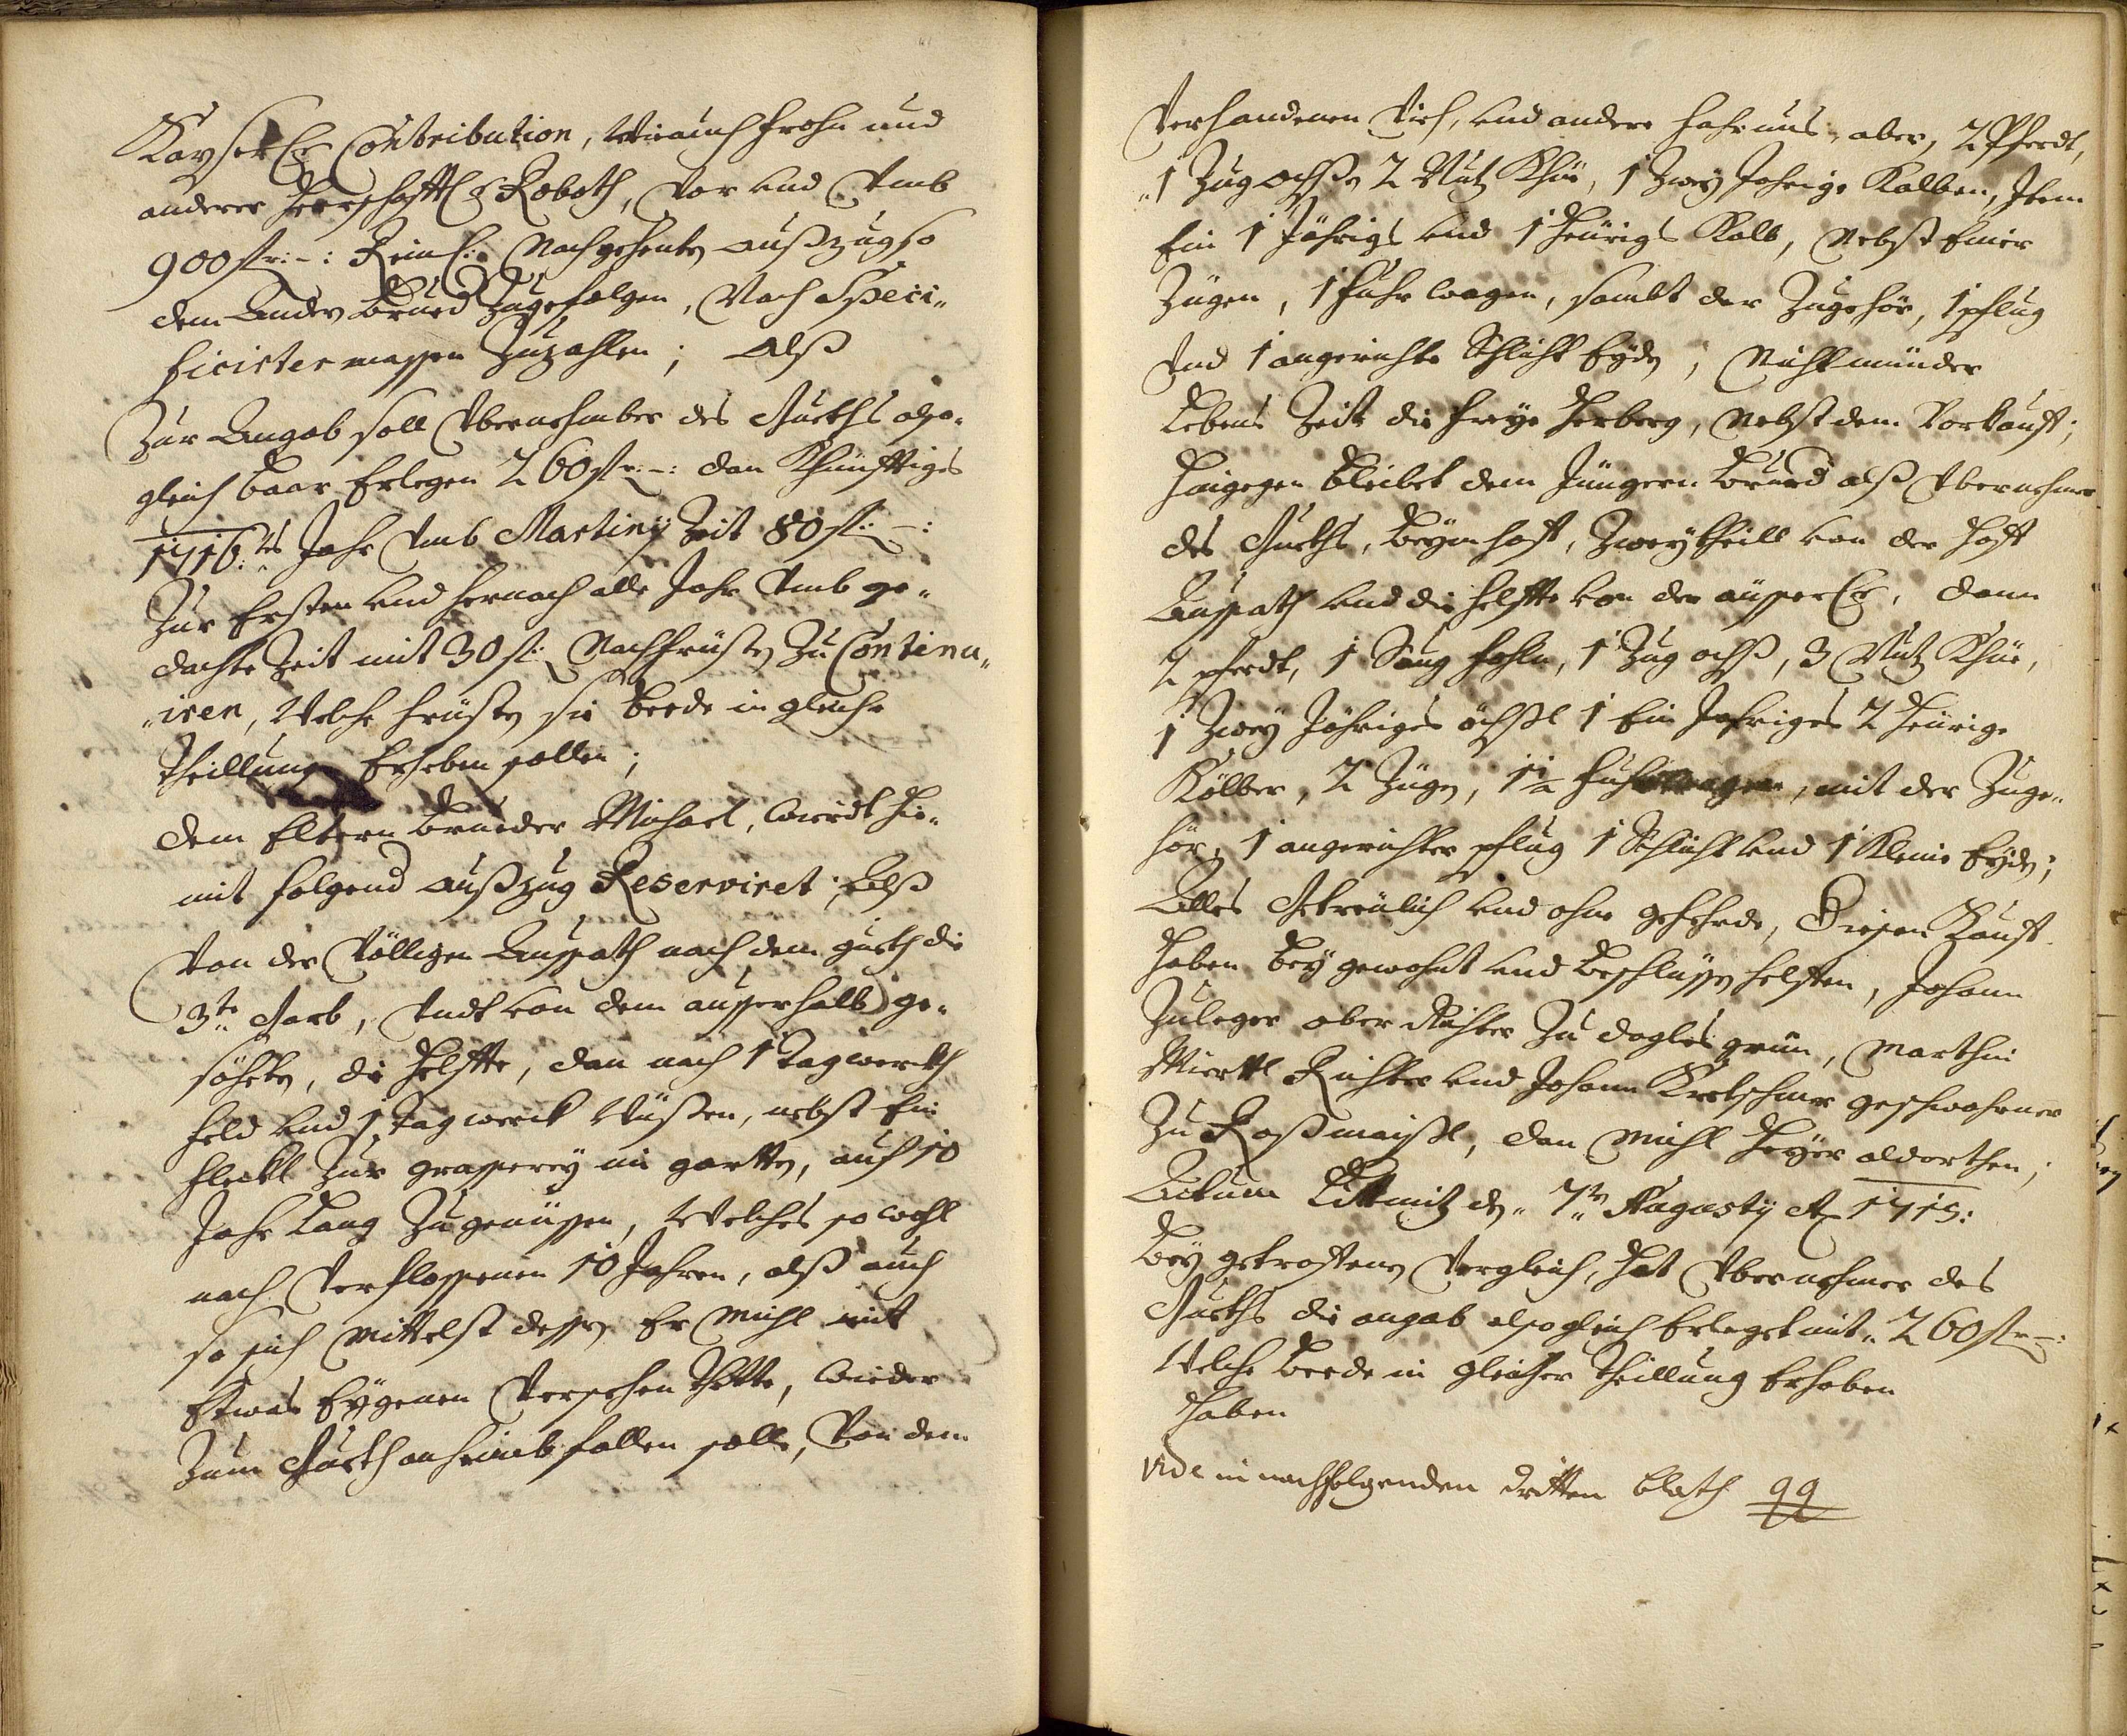 Kayserl: Contribution, Wie auch frohn und
anderer Herrschafftl: Roboth, Vor und Vmb
900 fl:-: Reinl: Nachgehenten außzug so
dem Andern Brued Zuegefolgen, Nach Speci-
ficirter massen Zuzahlen; Alß
Zur Angab soll Vbernehmber des Gueths also-
gleich baar Erlegen 260 fl:-: dan Khünfftiges
1716:tes Jahr Vmb Martiny Zeit 80 fl:-:
Zur Ersten und hernach alle Jahr Vmb ge-
dachte Zeit mit 30 fl: Nachfristen Zu Continu-
iren, Welche fristen sie beede in gleiche
Theillung Erheben sollen;
dem Eltern Brueder Michael, wierdt hie-
mit folgend außzug Reserviret; Alß
Von der Völligen Ansaath nach dem gueth die
3te Garb, Undt von dem ausserhalb ge-
söheten, die Helffte, dan nach 1 Tagwerckh
feld und 1 Tagwerck Wüßen, nebst Ein
fleckl Zur grasserey im gartten, auf 10
Jahr Lang Zu genüssen, Welches so wohl
nach Verflossenen 10 Jahren, alß auch
so sich Mittelst dessen Er Michl mit
Etwas Eygenen Versehen thette, wieder
Zum Gueth anheimb fallen solle, Von dem
Verhandenen Vieh, und andere fahrnus, aber, 2 Pferdt,
1 Zug ochßen 2 Nutz Khüe, 1 Zwey Jahrige Kalben, Item
Ein 1 Jährigs und 1 Heürigs Kalb, Nebst Einer
Zügen, 1 fuhr wagen, sambt der Zugehör, 1 pflug
Und 1 angerichte Schlicht Eyden; Nicht minder
Lebens Zeit die freye Herberg, Nebst dem Vorkauff;
Hingegen bleibet dem Jüngern Brued alß Vbernehmer
des Gueths, beym hoff, Zwey theill von der Hoff
Ansaath und die helffte von der äusserl:, dann
2 pferdt, 1 Saug fohln, 1 Zug ochß, 3 Nutz Khüe,
1 Zwey Jähriges öchsl 1 Ein Jahriges 2 Heürige
Kälber, 2 Zügen, 1½ fuhrwagen, mit der Zuge-
hör, 1 angerichter pflug 1 Schlicht und 1 Kleine Eyden;
Alles Getreülich und ohne gefehrde, Diesen Kauff
Haben bey gewohnt und beschlüssen helffen, Johann
Zuleger ober Richter Zu doglesgrün, Marthin
Miertl Richter und Johann Kretschmer geschwohrner
Zu Roßmaißl, dan Michl Heyer aldorthen;
Actum Littmitz den 7ten Augusty Ao 1715:
Bey getroffenen Vergleich, Hat Vbernehmer des
Gueths die angab alsogleich Erlegt mit 260 fl-:
Welche beede in gleicher Theillung Erhoben
Haben
vide in nachfolgenden dritten blath 99